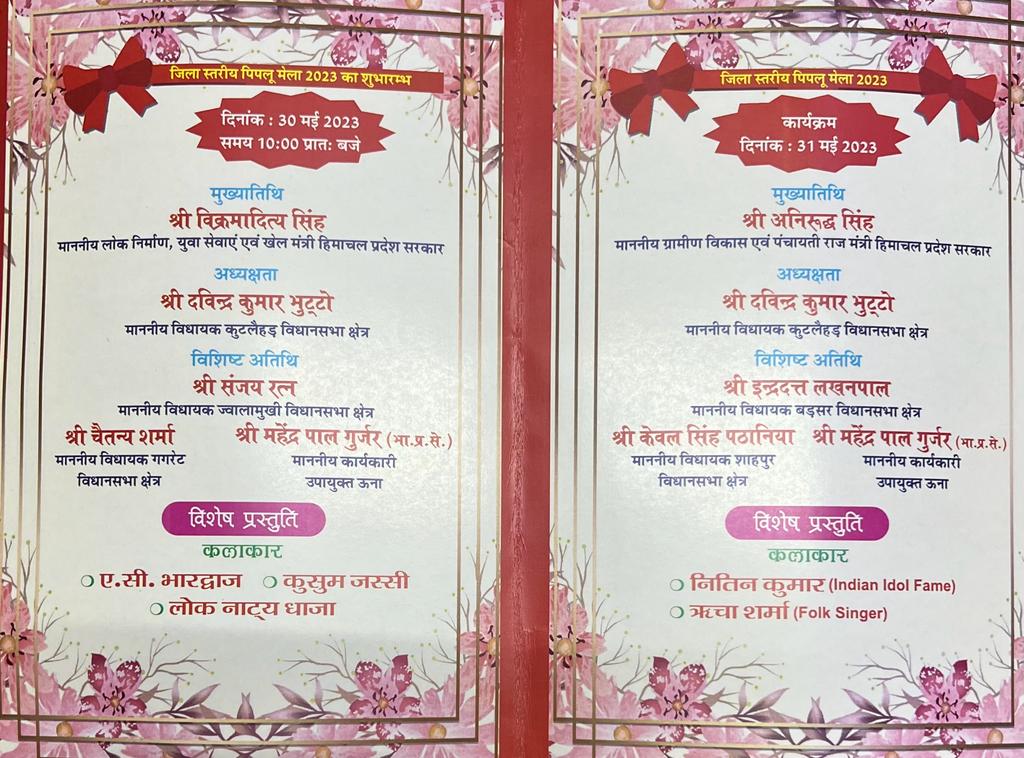 जिला स्तरीय पिपलू मेला 2023 का शुभारम्भ
दिनांक : 30 मई 2023
समय 10:00 प्रातः बजे
मुख्यातिथि
श्री विक्रमादित्य सिंह
माननीय लोक निर्माण, युवा सेवाएं एवं खेल मंत्री हिमाचल प्रदेश सरकार
अध्यक्षता
श्री दविन्द्र कुमार भुट्टो
माननीय विधायक कुटलैहड़ विधानसभा क्षेत्र
विशिष्ट अतिथि
श्री संजय रत्न
माननीय विधायक ज्वालामुखी विधानसभा क्षेत्र
श्री चैतन्य शर्मा
माननीय विधायक गगरेट
विधानसभा क्षेत्र
श्री महेंद्र पाल गुर्जर (भा.प्र.से.)
माननीय कार्यकारी
उपायुक्त ऊना
विशेष प्रस्तुति
कलाकार
ए.सी. भारद्वाज कुसुम जस्सी
लोक नाट्य धाजा
जिला स्तरीय पिपलू मेला 2023
कार्यक्रम
दिनांक : 31 मई 2023
मुख्यातिथि
श्री अनिरूद्ध सिंह
माननीय ग्रामीण विकास एवं पंचायती राज मंत्री हिमाचल प्रदेश सरकार
अध्यक्षता
श्री दविन्द्र कुमार भुट्टो
माननीय विधायक कुटलैहड़ विधानसभा क्षेत्र
विशिष्ट अतिथि
श्री इन्द्रदत्त लखनपाल
माननीय विधायक बड़सर विधानसभा क्षेत्र
श्री केवल सिंह पठानिया
माननीय विधायक शाहपुर
विधानसभा क्षेत्र
श्री महेंद्र पाल गुर्जर (भा.प्र.से.)
माननीय कार्यकारी
उपायुक्त ऊना
विशेष प्रस्तुति
कलाकार
नितिन कुमार (Indian Idol Fame)
ऋचा शर्मा (Folk Singer)